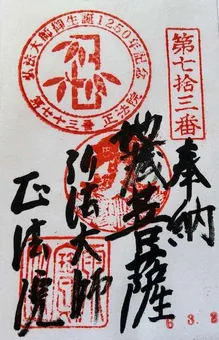 第七拾三番
弘法大師御生誕1250年記念
第七十三番 正法院
奉納
地蔵菩薩
弘法大師
正法院
6.3.2